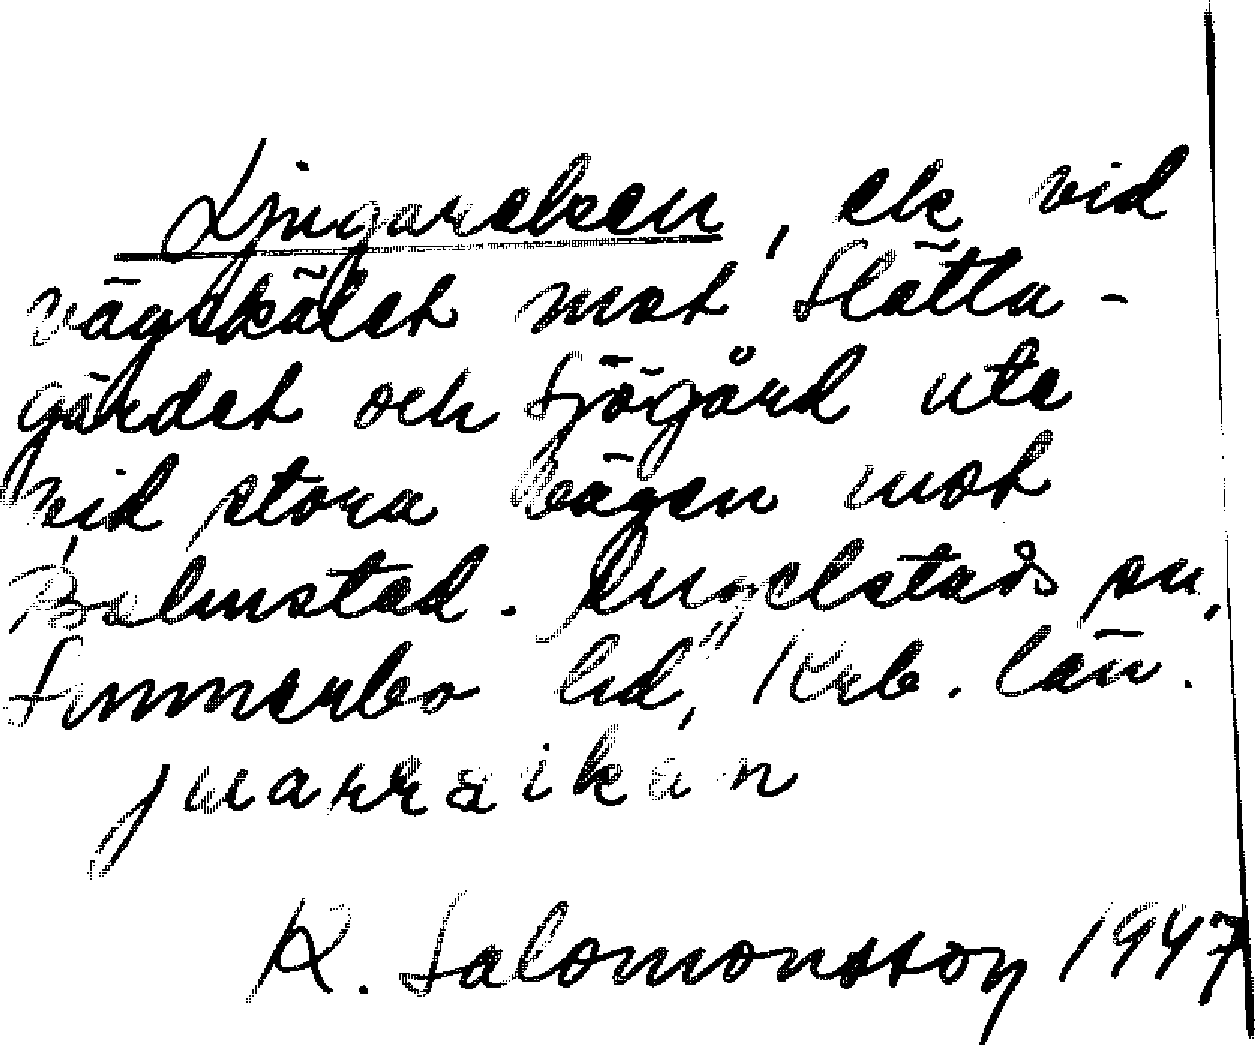 Ljungareken, ek vid
vägskälet mot Slätta-
gärdet och Sjögård ute
vid stora vägen mot
Bolmstad. Angelstads sn,
Sunnerbo hd, Krb. län.
K. Salomonsson 1947